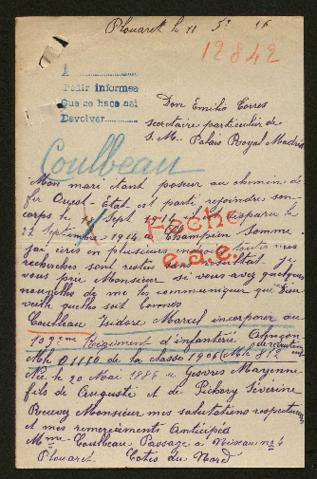 Plouaret le 11 5º 16
12842
A
Pedir informes
Que se hace así
Devolver
Don Emilio Torres
secretaire particulier de
S. M. Palais Royal Madrid
Coulbeau
Mon mari étant poseur au chemin de
fer Ouest-Etat est parti rejoindre son
corps le 13 Sept 1914 disparu le
22 Septembre 1914 à Champien Somme
j'ai écris en plusieurs toutes mes
recherches sont restées sans résultat. je
vous prie Monsieur si vous avez quelques
nouvelles de me les communiquer que
Fecho
e.a.e.
Coulbeau Isidore Marcel incorporer au
109eme Régiment d'infanterie
Mle 01150 de la classe 1906 Mle 812
Née le 20 Mai 1886 à Gesvres Mayenne
fils de Auguste et de Séverine
Recevez Monsieur mes salutations respectueuses
et mes remerciements Anticipés
Mme Coulbeau Passage à Niveau nº
Plouaret Cotes du Nord